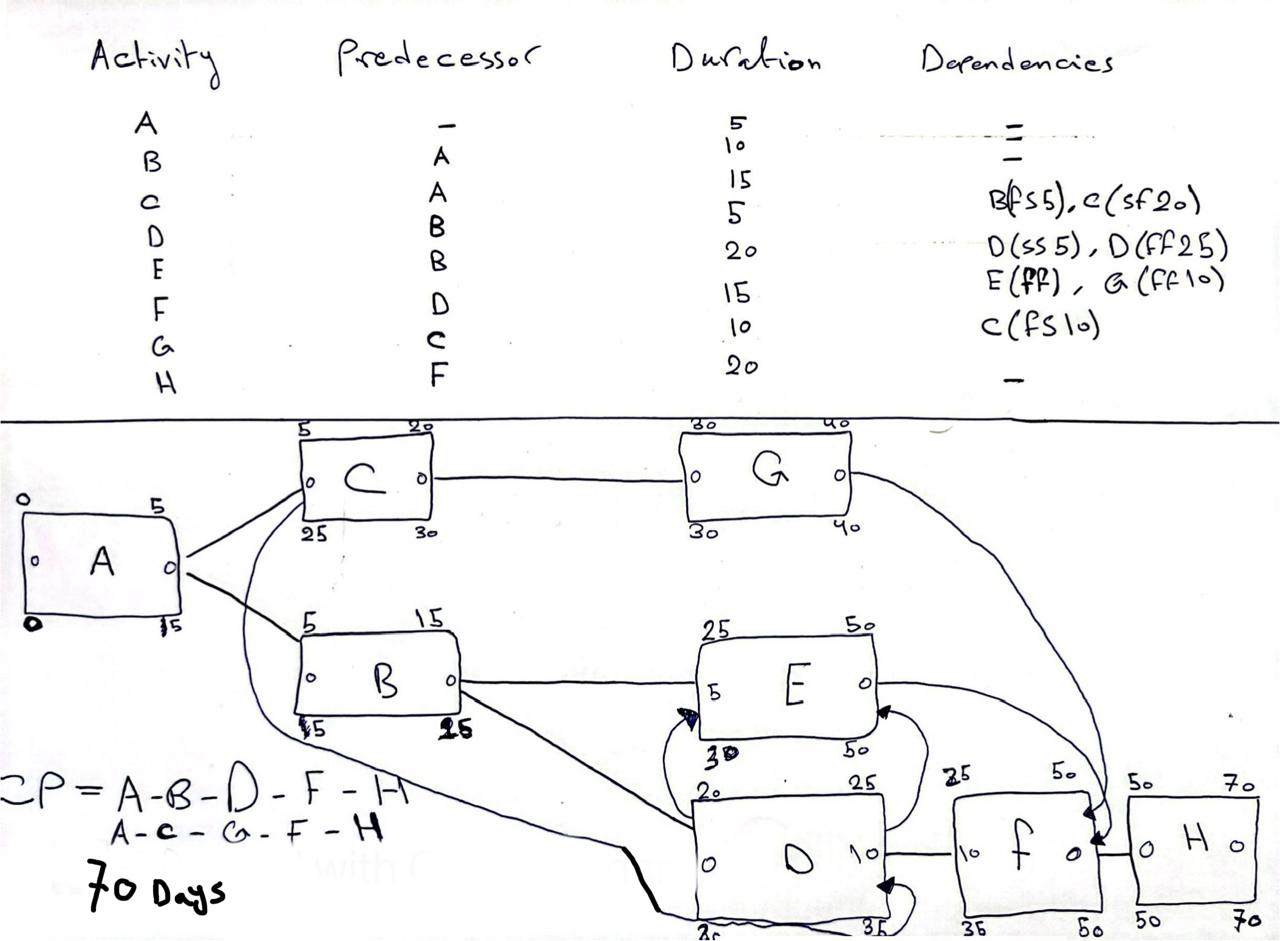 Activity Predecessor Duration Dependencies
A – 5 –
B A 10 –
C A 15 –
D B 5 B(fs5), C(sf20)
E B 20 D(ss5), D(ff25)
F D 15 E(ff), G(ff10)
G C 10 C(fs10)
H F 20 –
5 20
0 C 0
25 30
30 40
0 G 0
30 40
0 5
0 A 0
0 15
5 15
0 B 0
15 25
25 50
5 E 0
30 50
20 25
0 D 10
35
25 50
10 f 0
35 50
50 70
0 H 0
50 70
CP = A-B-D-F-H
A-C-G-F-H
70 Days